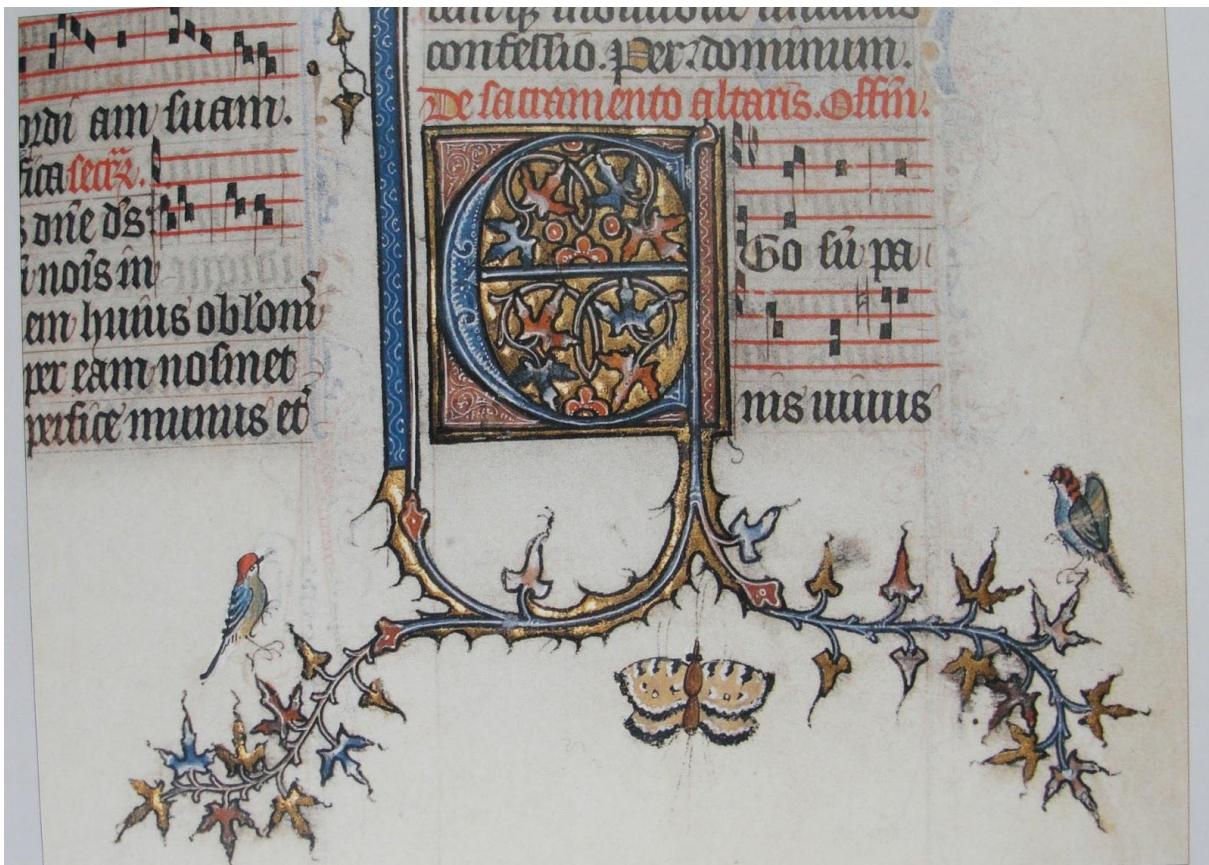 ordi am suam.
secr̃.
s dñe ds̃
noĩs in
em huius oblonĩ
per eam nosmet
perfice munus et
confessio. Per dominum.
De sacramento altaris. Offm̃.
E
Go sũ pa
nis uiuus